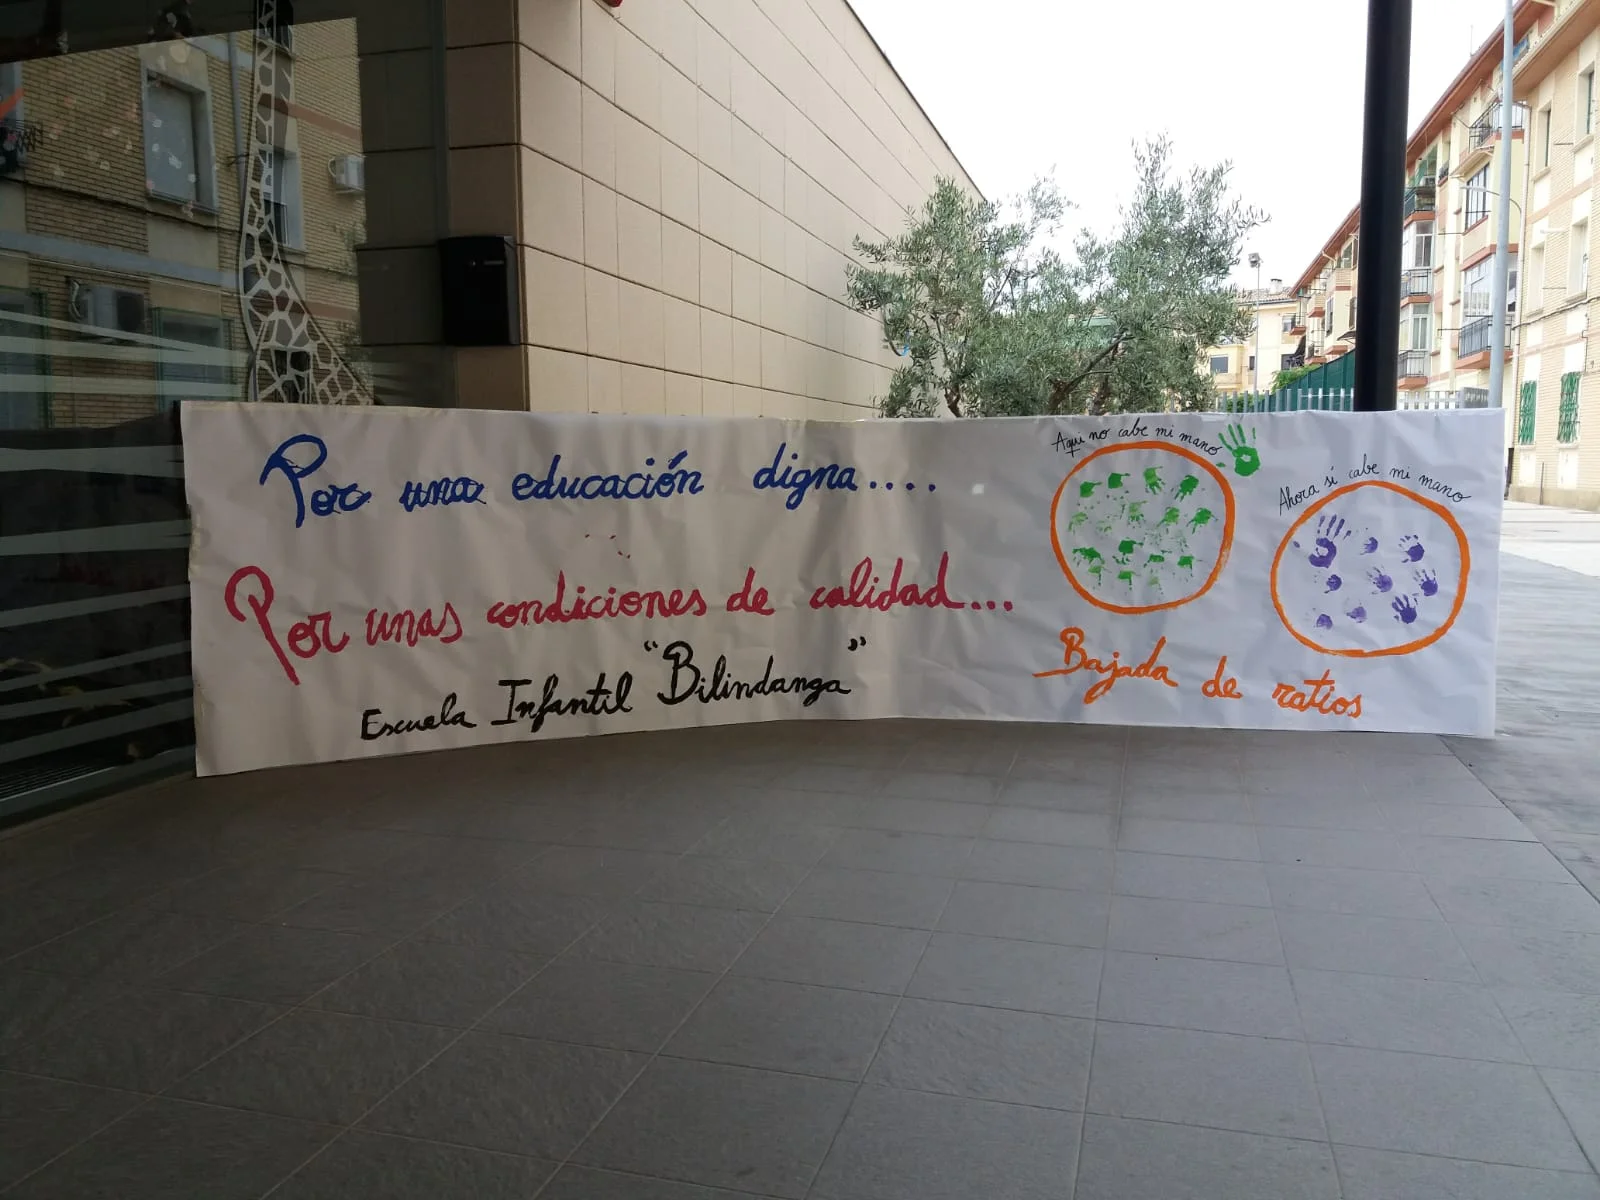 Por una educación digna....
Por unas condiciones de calidad...
Escuela Infantil "Bilindanga"
Aqui no cabe mi mano
Ahora sí cabe mi mano
Bajada de ratios